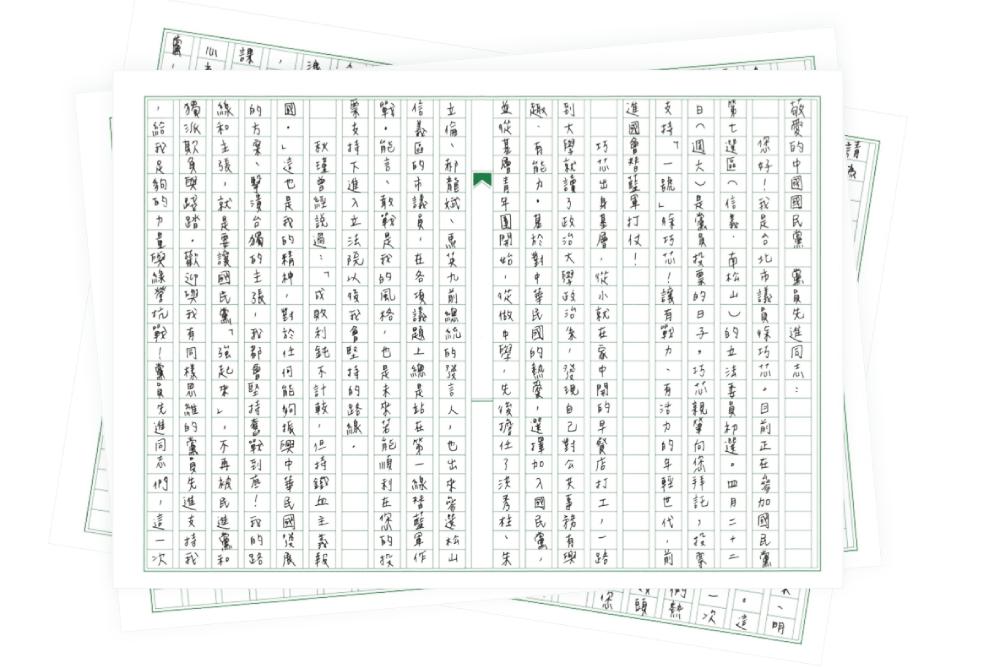 敬愛的中國國民黨 黨員先進同志：
您好！我是台北市議員徐巧芯。目前正在參加國民黨
第七選區（信義．南松山）的立法委員初選。四月二十二
日（週六）是黨員投票的日子。巧芯親筆向您拜託，投票
支持「一號」徐巧芯！讓有戰力、有活力的年輕世代，前
進國會替藍軍打仗！
巧芯出身基層，從小就在家中開的早餐店打工，一路
到大學就讀了政治大學政治系，發現自己對公共事務有興
趣、有能力。基於對中華民國的熱愛，選擇加入國民黨，
並從基層青年團開始，從做中學，先後擔任了洪秀柱、朱
立倫、郝龍斌、馬英九前總統的發言人，也出來參選松山
信義區的市議員，在各項議題上總是站在第一線替藍軍作
戰。能言、敢戰是我的風格，也是未來若能順利在您的投
票支持下進入立法院以後我會堅持的路線。
秋瑾曾經說過：「成敗利鈍不計較，但持鐵血主義報
國。」這也是我的精神，對於任何能夠振興中華民國發展
的方案、擊潰台獨的主張，我都會堅持奮戰到底！我的路
線和主張，就是要讓國民黨「強起來」，不再被民進黨和
獨派欺負與踐踏。歡迎與我有同樣思維的黨員先進支持我
，給我足夠的力量與綠營抗戰！黨員先進同志們，這一次
請
明
。這
一次
們熱
領頭
您
課
心
黨